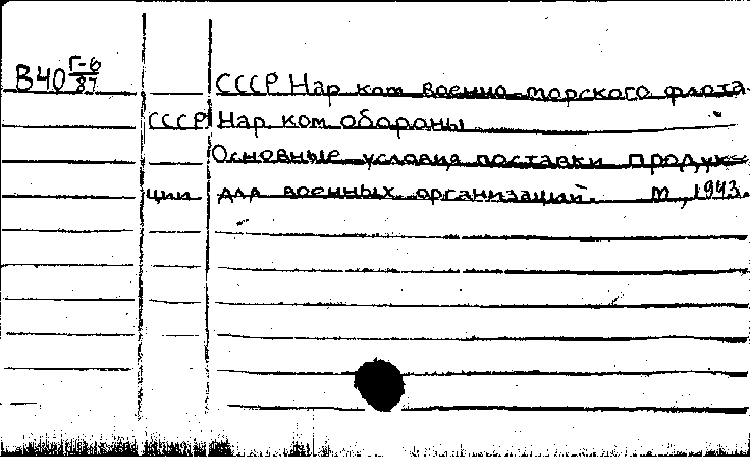 В40 Г-6/87 СССР Нар ком военно-морского флота.
СССР Нар. ком обороны
Основные условия поставки продук=
ции для военных организаций. М, 1943.